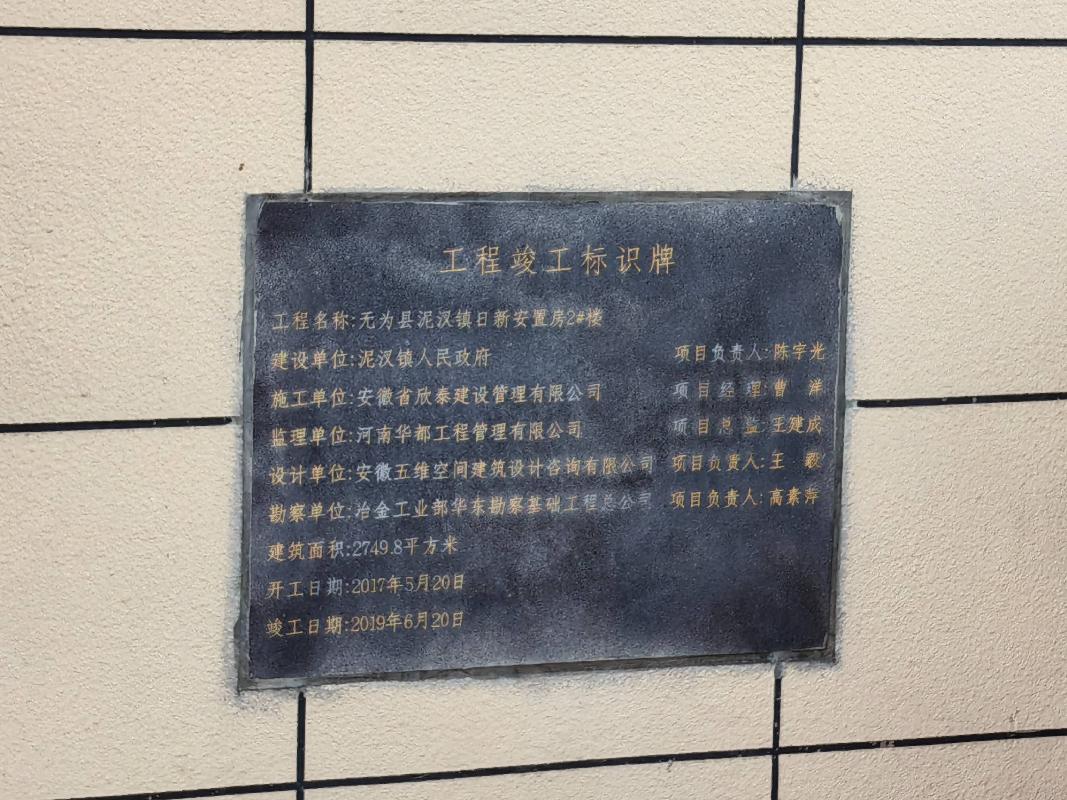 工程竣工标识牌
工程名称:无为县泥汊镇日新安置房2#楼
建设单位:泥汊镇人民政府 项目负责人:陈宇光
施工单位:安徽省欣泰建设管理有限公司 项目经理:曹 洋
监理单位:河南华都工程管理有限公司 项目总监:王建成
设计单位:安徽五维空间建筑设计咨询有限公司 项目负责人:王 毅
勘察单位:冶金工业部华东勘察基础工程总公司 项目负责人:高素萍
建筑面积:2749.8平方米
开工日期:2017年5月20日
竣工日期:2019年6月20日